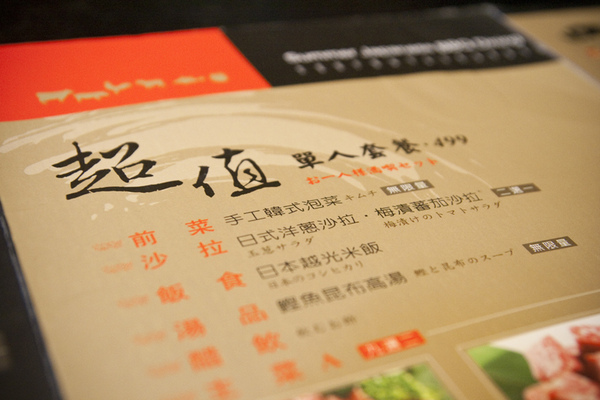 超值 單人套餐·499
お一人様満喫セット
前菜 手工韓式泡菜 キムチ 無限量
沙拉 日式洋蔥沙拉·梅漬蕃茄沙拉 二選一
玉葱サラダ 梅漬けのトマトサラダ
飯食 日本越光米飯
日本のコシヒカリ
湯品 鰹魚昆布高湯 鰹と昆布のスープ 無限量
醋飲
主菜A